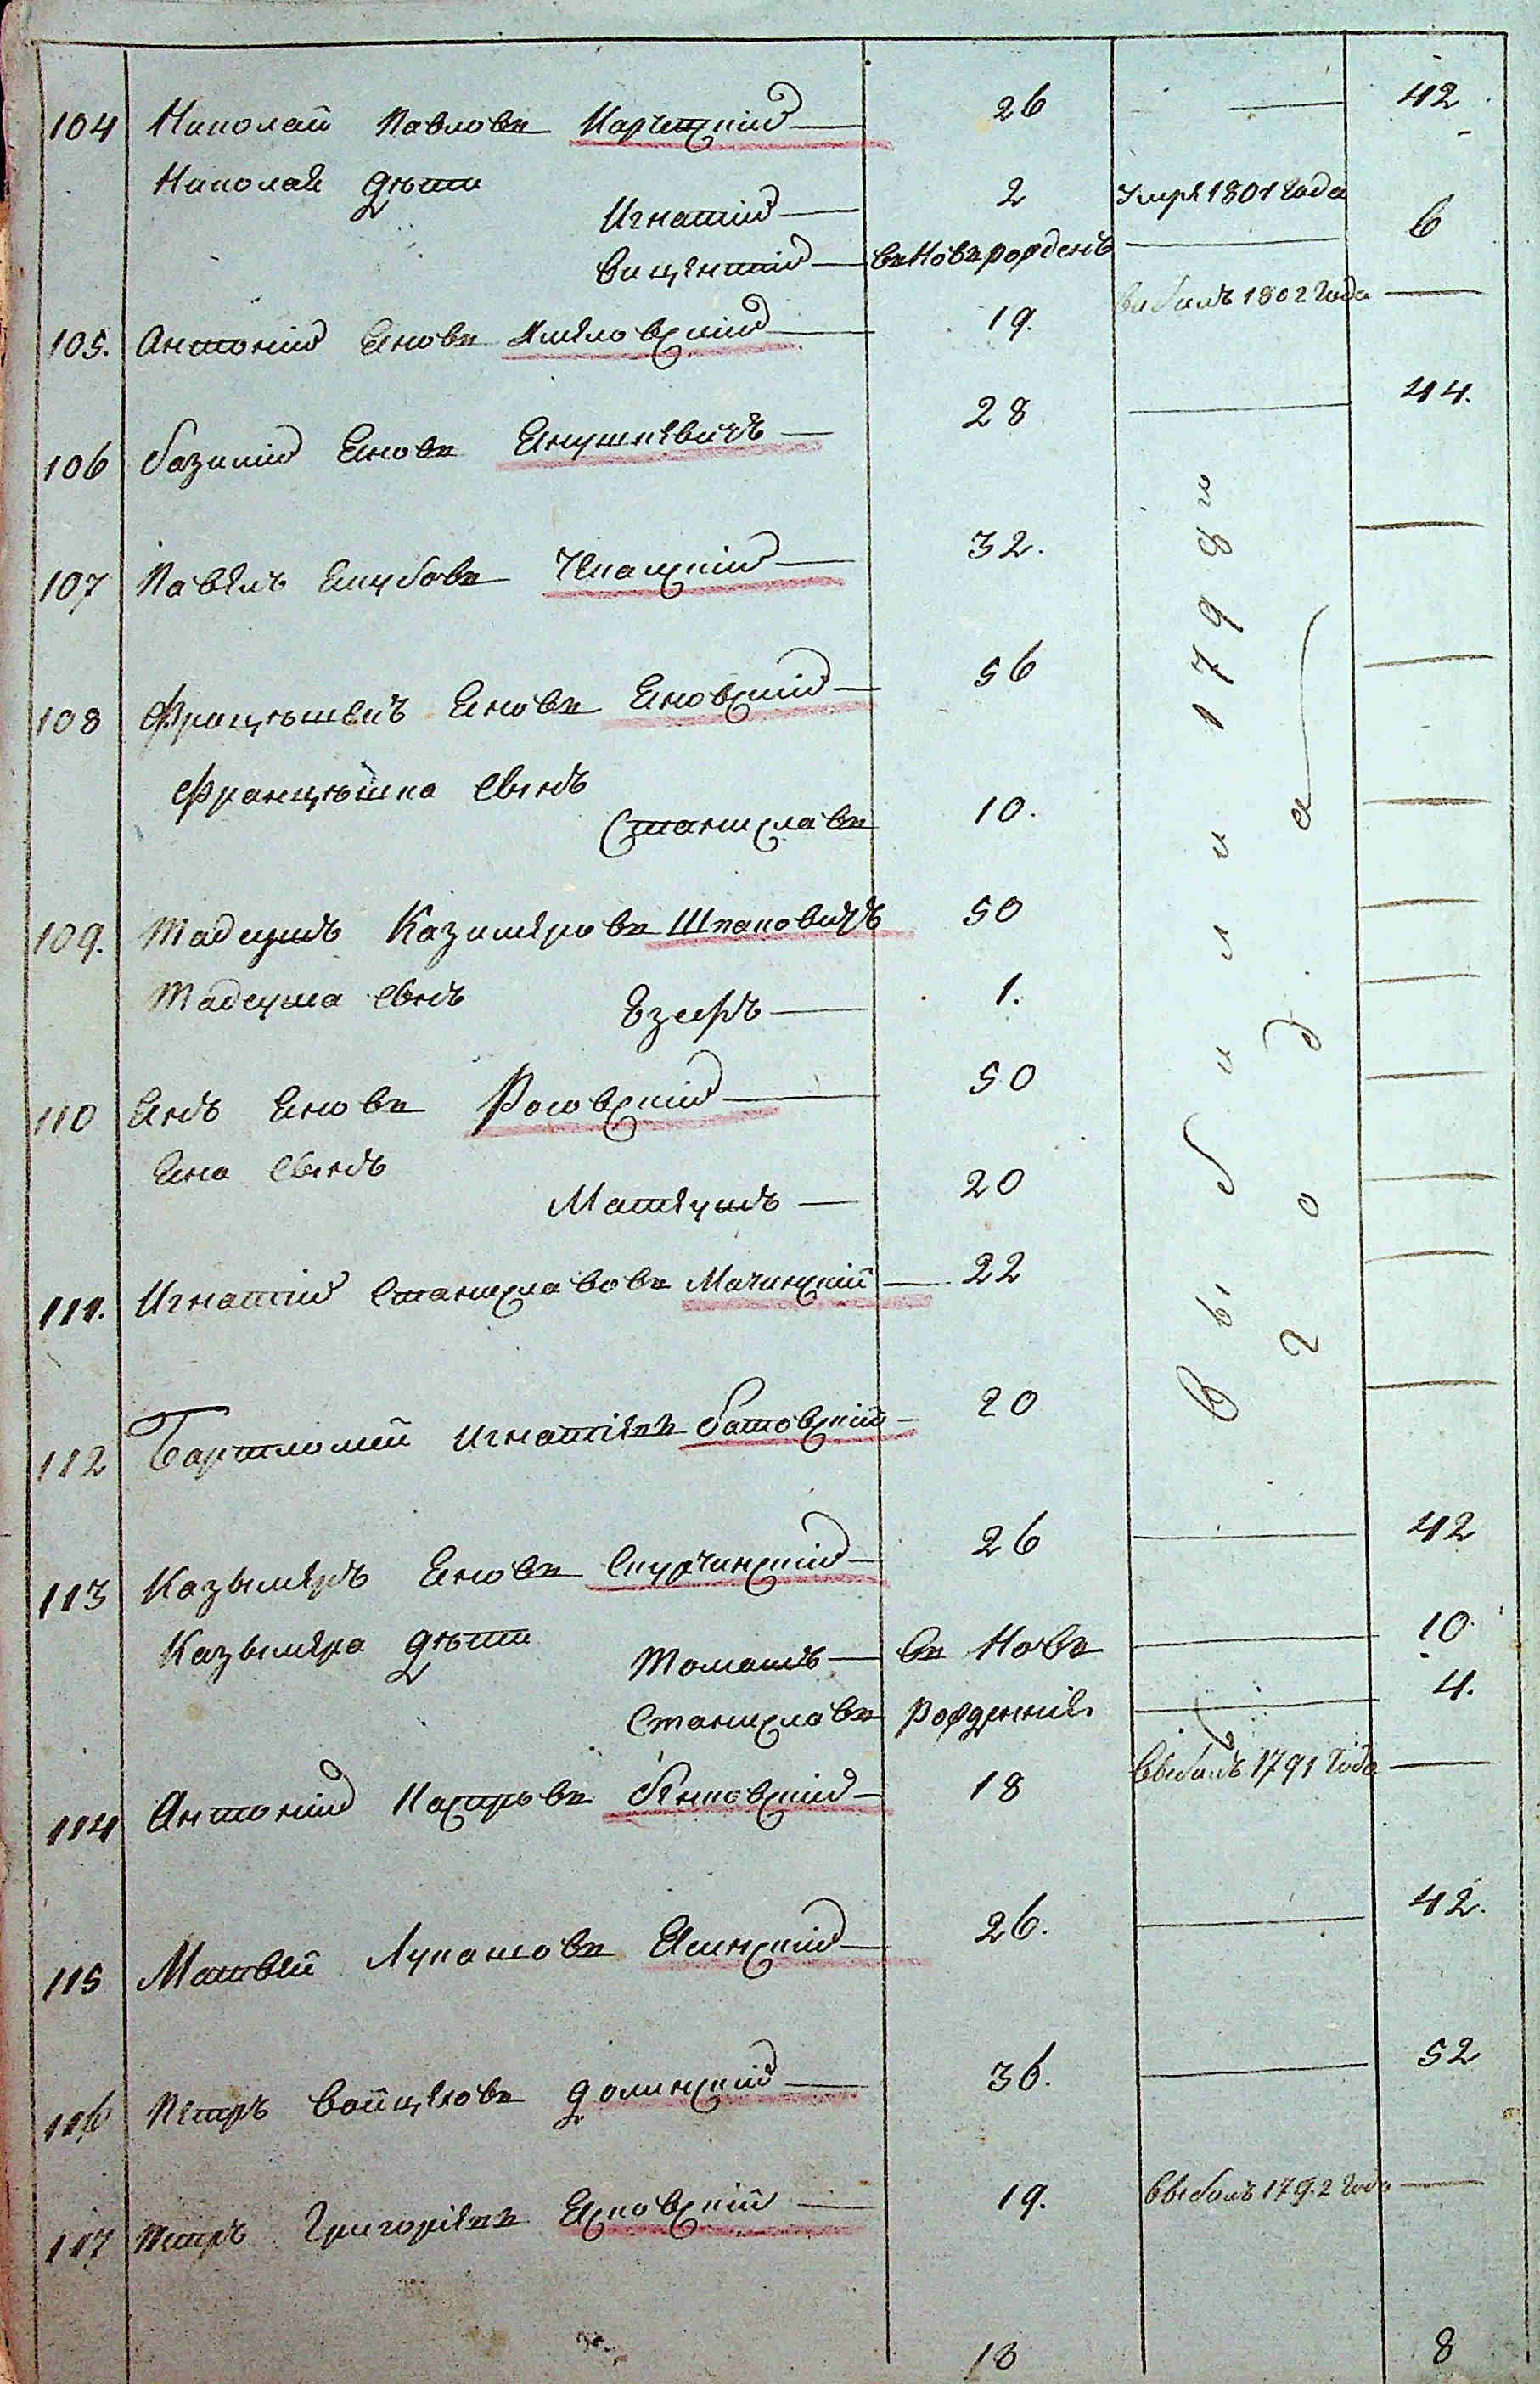 104 Николай Павловъ Карчевскій — 26 — 42
Николая дѣти
Игнатій — 2 умре 1801 года
Вицентій — въ Новъ рожденъ — 6
105. Антоній Яновъ — 19. выбылъ 1802 года —
106 Базилій Яновъ Янушкевичъ — 28 — 44.
107 Павелъ Якубовъ 32. —
108 Францышекъ Яновъ Яновскій — 56 —
Францышка сынъ
Станиславъ 10. —
109. Тадеушъ Казимеровъ Шпаковичъ 50 —
Тадеуша сынъ
Езефъ — 1. —
110 Янъ Яновъ Росовскій — 50 —
Яна сынъ
Матеушъ — 20 —
111. Игнатій Станиславовъ Мачинскій — 22 —
112 Бартломей Игнатіевъ Батовскій — 20 —
Выбыли 1798 го
года
113 Казымеръ Яновъ Скурчинскій — 26 — 42
Казымера дѣти
Томашъ — въ Новъ — 10.
Станиславъ рожденнія — 4.
114 Антоній Каспровъ Бенковскій — 18 выбылъ 1791 года —
115 Матвей Лукашовъ Ясинскій — 26. — 42.
116 Петръ Войцеховъ Долинскій — 36. — 52
117 Петръ Григоріевъ Ясновскій — 19. выбылъ 1792 года —
18 8